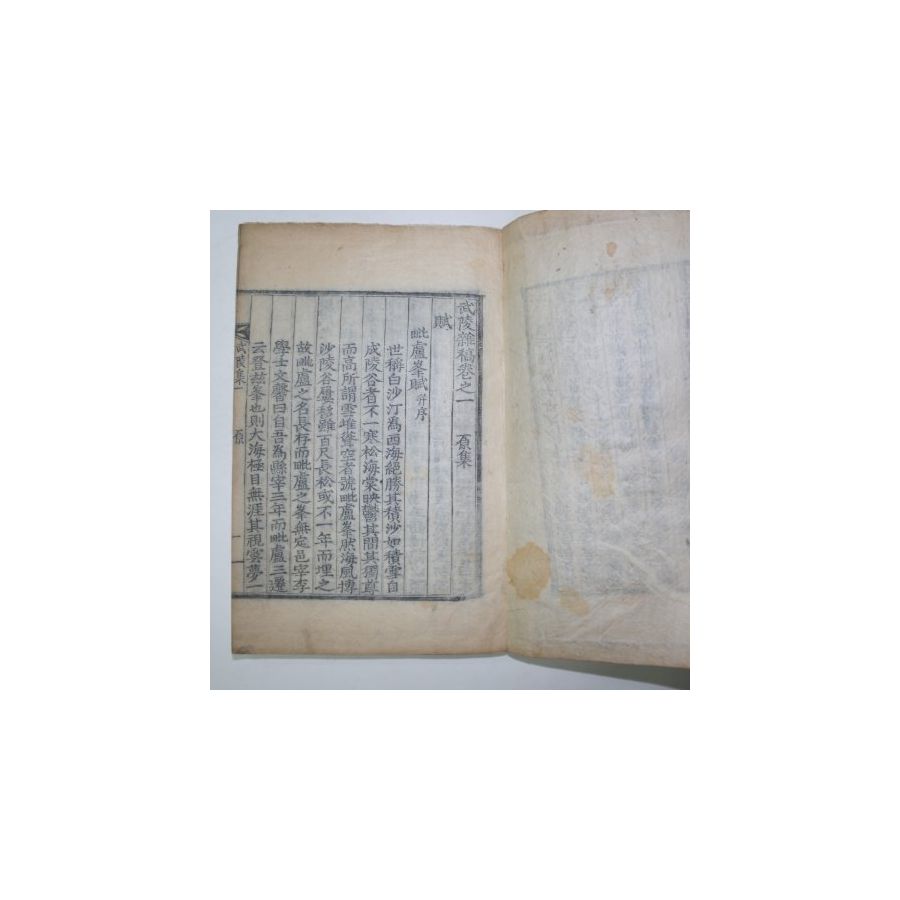 武陵雜稿卷之一　原集
賦
毗盧峯賦 并序
世稱白沙汀為西海絕勝其積沙如積雪自
成陵谷者不一寒松海棠映鬱其間其獨尊
而高所謂雪堆聳空者號毗盧峯肰海風摶
沙陵谷屢 雖百尺長松或不一年而埋之
故毗盧之名長存而毗盧之峯無定邑宰李
學士文馨曰自吾為縣宰三年而毗盧三遷
云登玆峯也則大海極目無涯其視雲夢一
武陵集　原　一